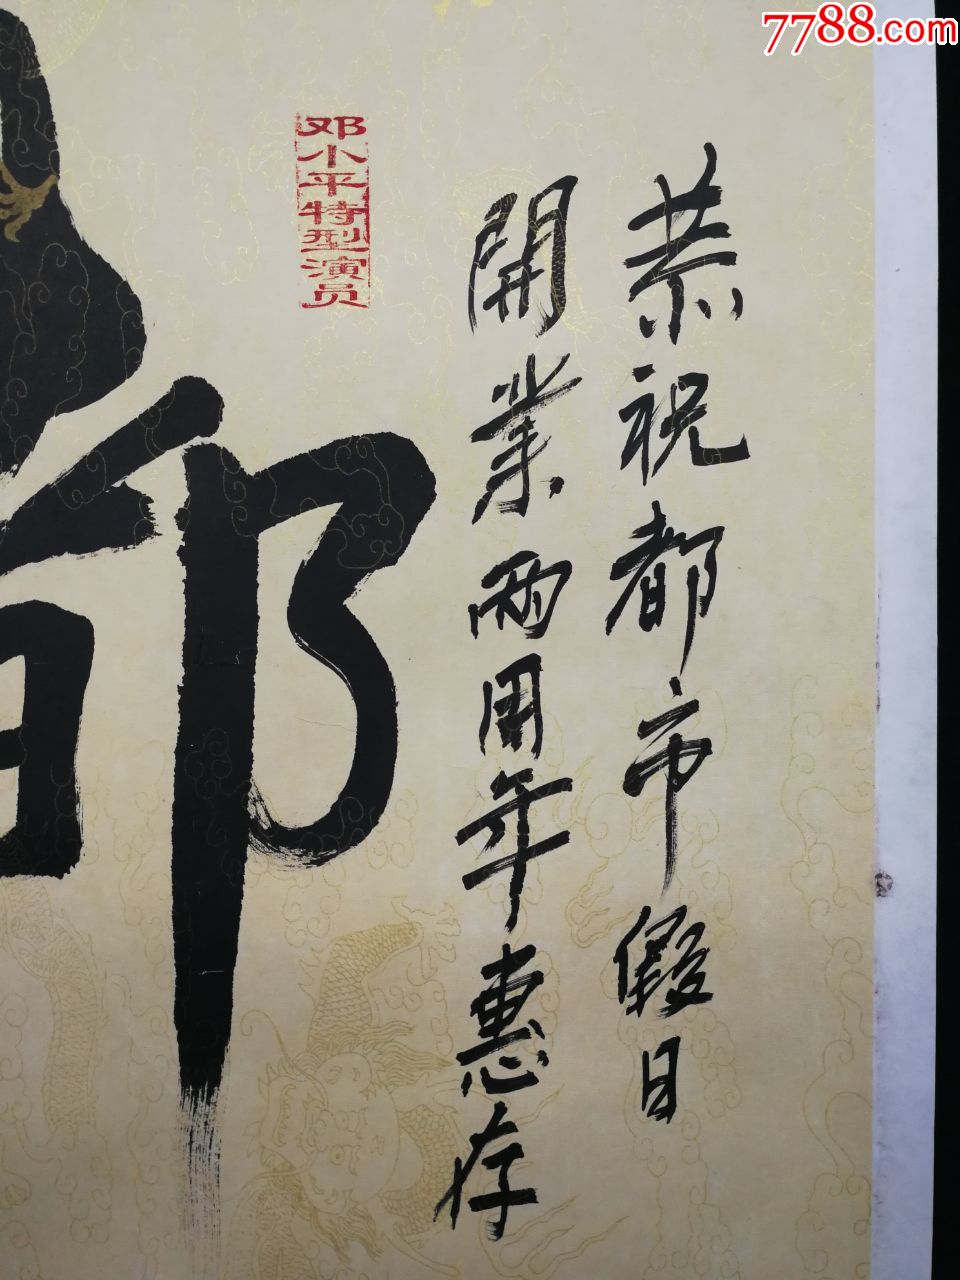 7788.com
恭祝都市假日
開業兩周年惠存
邓小平特型演员
都